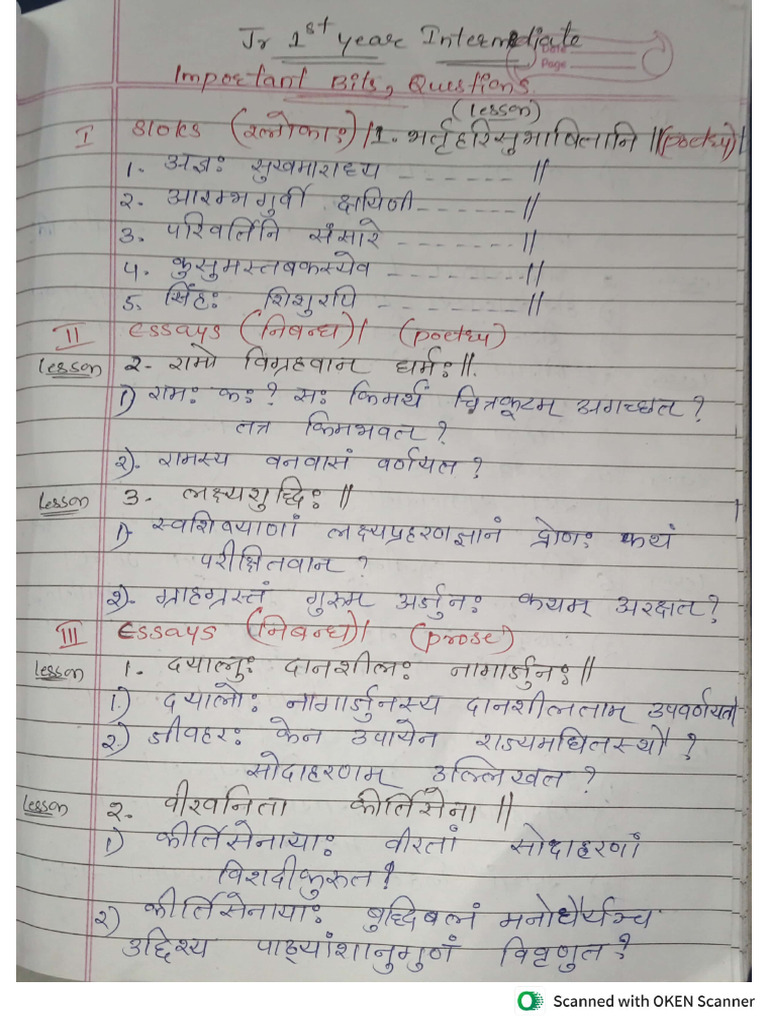 Jr 1st year Intermediate
Date
Page
Important Bits, Questions.
(lesson)
I Sloks (श्लोकाः) | 1. भर्तृहरिसुभाषितानि || (poetry) |
1. अज्ञः सुखमाराध्य ------- ||
2. आरम्भगुर्वी क्षयिणी ------ ||
3. परिवर्तिनि संसारे ------- ||
४. कुसुमस्तबकस्येव -------- ||
5. सिंहः शिशुरपि -------- ||
II Essays (निबन्ध) | (poetry)
Lesson 2- रामो विग्रहवान धर्मः ||.
1) रामः कः? सः किमर्थं चित्रकूटम् अगच्छत?
तत्र किमभवत?
२). रामस्य वनवासं वर्णयत?
Lesson 3. लक्ष्यशुद्धिः ||
1) स्वशिष्याणां लक्ष्यप्रहरणज्ञानं द्रोणः कथं
परीक्षितवान?
२). ग्राहग्रस्तं गुरुम अर्जुनः कथम् अरक्षत?
III Essays (निबन्ध) | (prose)
Lesson 1. दयालुः दानशीलः नागार्जुनः ||
1.) दयालोः नागार्जुनस्य दानशीलताम् उपवर्णयत
2.) जीवहरः केन उपायेन राज्यमधितस्थौ?
सोदाहरणम् उल्लिखत?
Lesson २. वीरवनिता कीर्तिसेना ||
1) कीर्तिसेनायाः वीरतां सोदाहरणां
विशदीकुरुत?
२) कीर्तिसेनायाः बुद्धिबलं मनोधैर्यञ्च
उद्दिश्य पाठ्यांशानुगुणं विवृणुत?
Scanned with OKEN Scanner